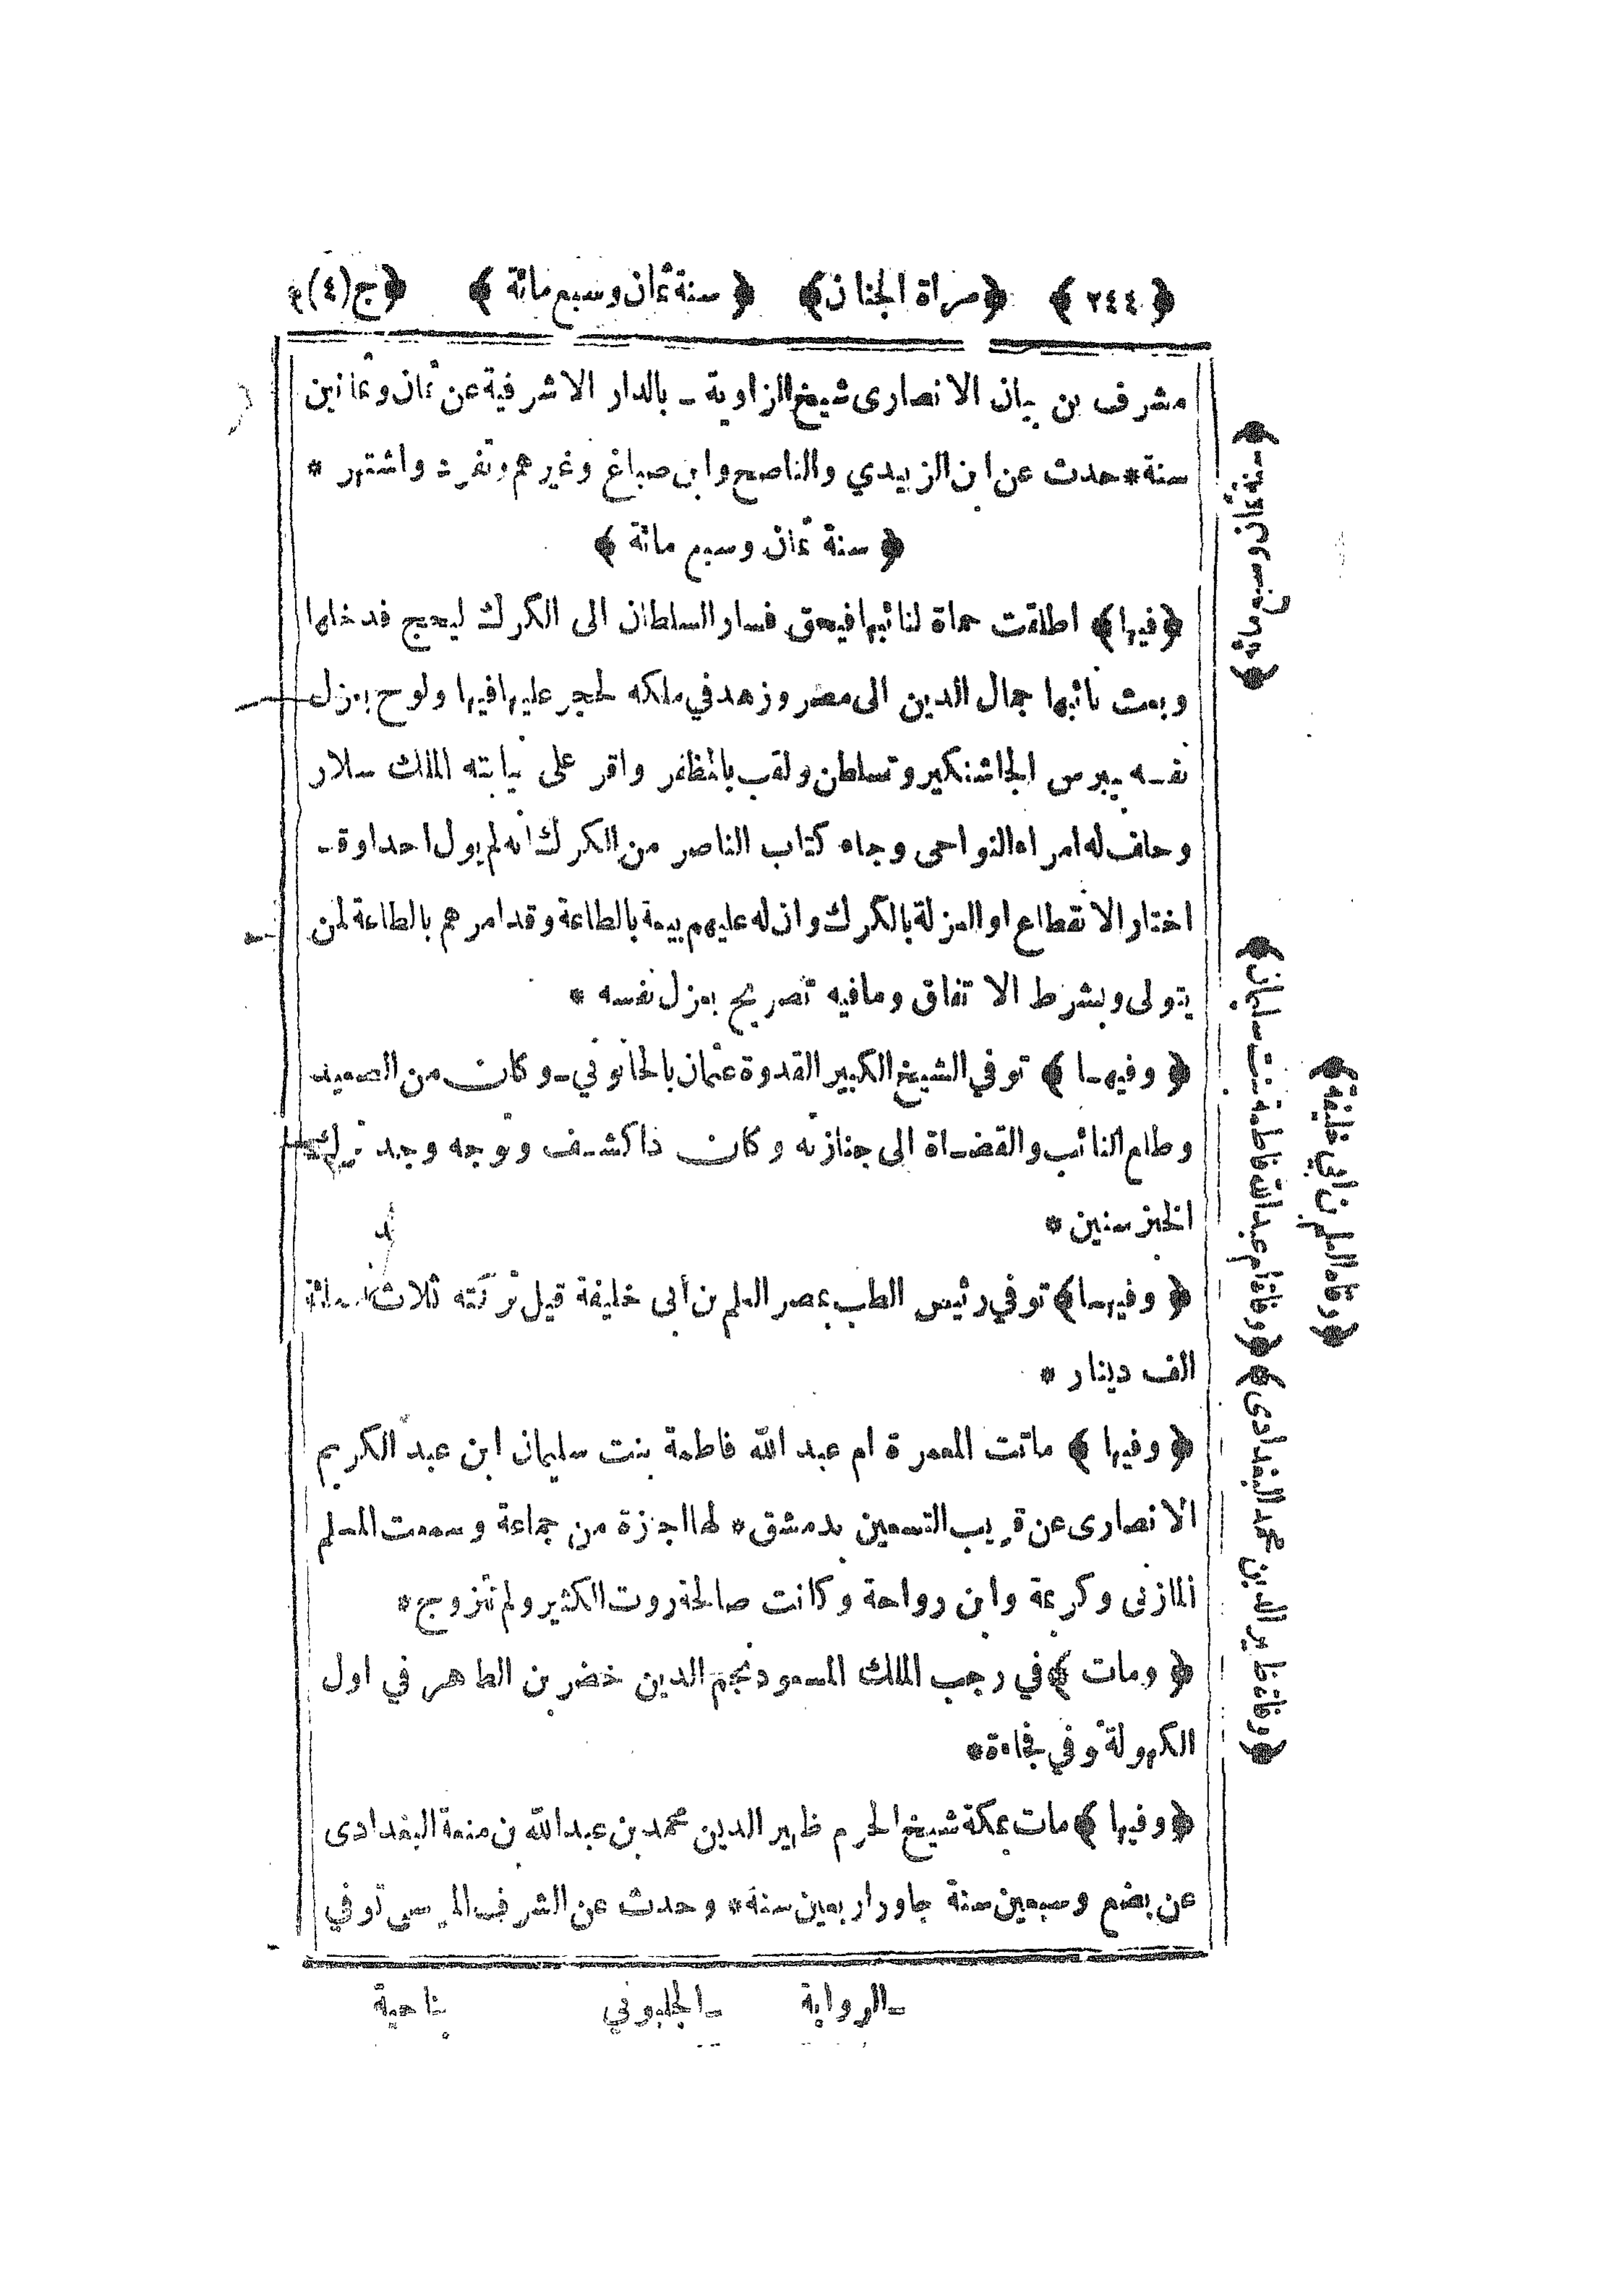 ﴿ ٢٤٤ ﴾ ﴿ مراة الجنان ﴾ ﴿ سنة ثمان وسبع مائة ﴾ ﴿ ج (٤) ﴾
مشرف بن بيان الانصارى شيخ الزاوية ـ بالدار الاشرفية عن ثمان وثمانين
سنة * حدث عن ابن الزبيدي والناصح وابن صباغ وغيرهم وتفرد واشتهر *
﴿ سنة ثمان وسبع مائة ﴾
﴿ فيها ﴾ اطلقت حماة لنائبها فيحق فسار السلطان الى الكرك ليحج فدخلها
وبعث نائبها جمال الدين الى مصر وزهد في ملكه لحجر عليها فيها ولوح بعزل
نفسه بيبرس الجاشنكير وتسلطن ولقب بالمظفر واقر على نيابته الملك سلار
وحلف له امراء النواحى وجاء كتاب الناصر من الكرك انه لم يول احدا وقد
اختار الانقطاع او العزلة بالكرك وان له عليهم بيعة بالطاعة وقد امرهم بالطاعة لمن
يتولى وبشرط الاتفاق وما فيه تصريح بعزل نفسه *
﴿ وفيها ﴾ توفي الشيخ الكبير القدوة عثمان بالحانوني ـ وكان من الصعيد
وطلع النائب والقضاة الى جنازته وكان ذا كشف وتوجه وجد ترك
الخبز سنين *
﴿ وفيها ﴾ توفي رئيس الطب بمصر العلم بن أبى خليفة قيل تركته ثلاث مائة
الف دينار *
﴿ وفيها ﴾ ماتت المعمرة ام عبد الله فاطمة بنت سليمان ابن عبد الكريم
الانصارى عن قريب التسعين بدمشق * لها اجزة من جماعة وسمعت المسلم
المازنى وكريمة وابن رواحة وكانت صالحة روت الكثير ولم تتزوج *
﴿ ومات ﴾ في رجب الملك المسعود نجم الدين خضر بن الطاهر في اول
الكهولة توفي فجاءة *
﴿ وفيها ﴾ مات بمكة شيخ الحرم ظهير الدين محمد بن عبدالله بن منعة البغدادى
عن بضع وسبعين سنة جاور اربعين سنة * وحدث عن الشرف المرسى توفي
ـ الرواية ـ الجلبوني بناحية
﴿ سنة ثمان وسبع مائة ﴾
﴿ وفاة ام عبدالله فاطمة بنت سليمان ﴾
﴿ وفاة العلم بن ابي خليفة ﴾
﴿ وفاة ظهير الدين محمد البغدادى ﴾